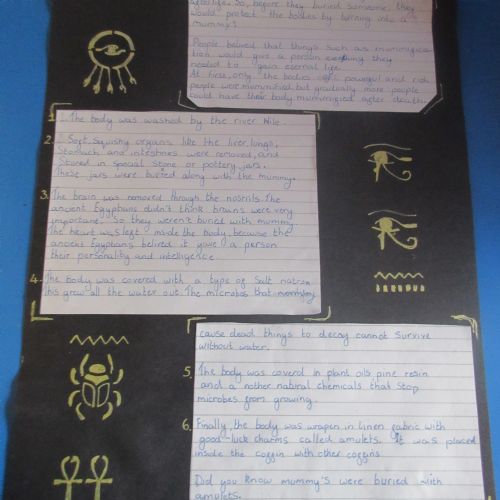 afterlife. So, before they buried someone, they
would protect the bodies by turning into a
mummys!
People belived that things such as mummyfica-
tion would give a person everything they
needed to gain eternal life.
At first, only the bodies of powerful and rich
people were mummified but gradually more people
could have their body mummified after death.
1. The body was washed by the river Nile.
2. Soft, squishy organs like the liver, lungs,
Stomach and intestines were removed, and
Stored in special stone or pottery jars.
These jars were buried along with the mummy.
3. The brain was removed through the nostrils. The
ancient Egyptians didn't think brains were very
important so they weren't buried with mummy.
The heart was left inside the body, because the
ancient Egyptians belived it gave a person
their personality and intelligence.
4. The body was covered with a type of Salt natron.
This drew all the water out. The microbes that
cause dead things to decay cannot survive
without water.
5. The body was coverd in plant oils, pine resin
and a nother natural chemicals that stop
microbes from growing.
6. Finally, the body was wraped in linen fabric with
good-luck charms called amulets. It was placed
inside the coffin with other coffins
Did you know mummy's were buried with
amulets.